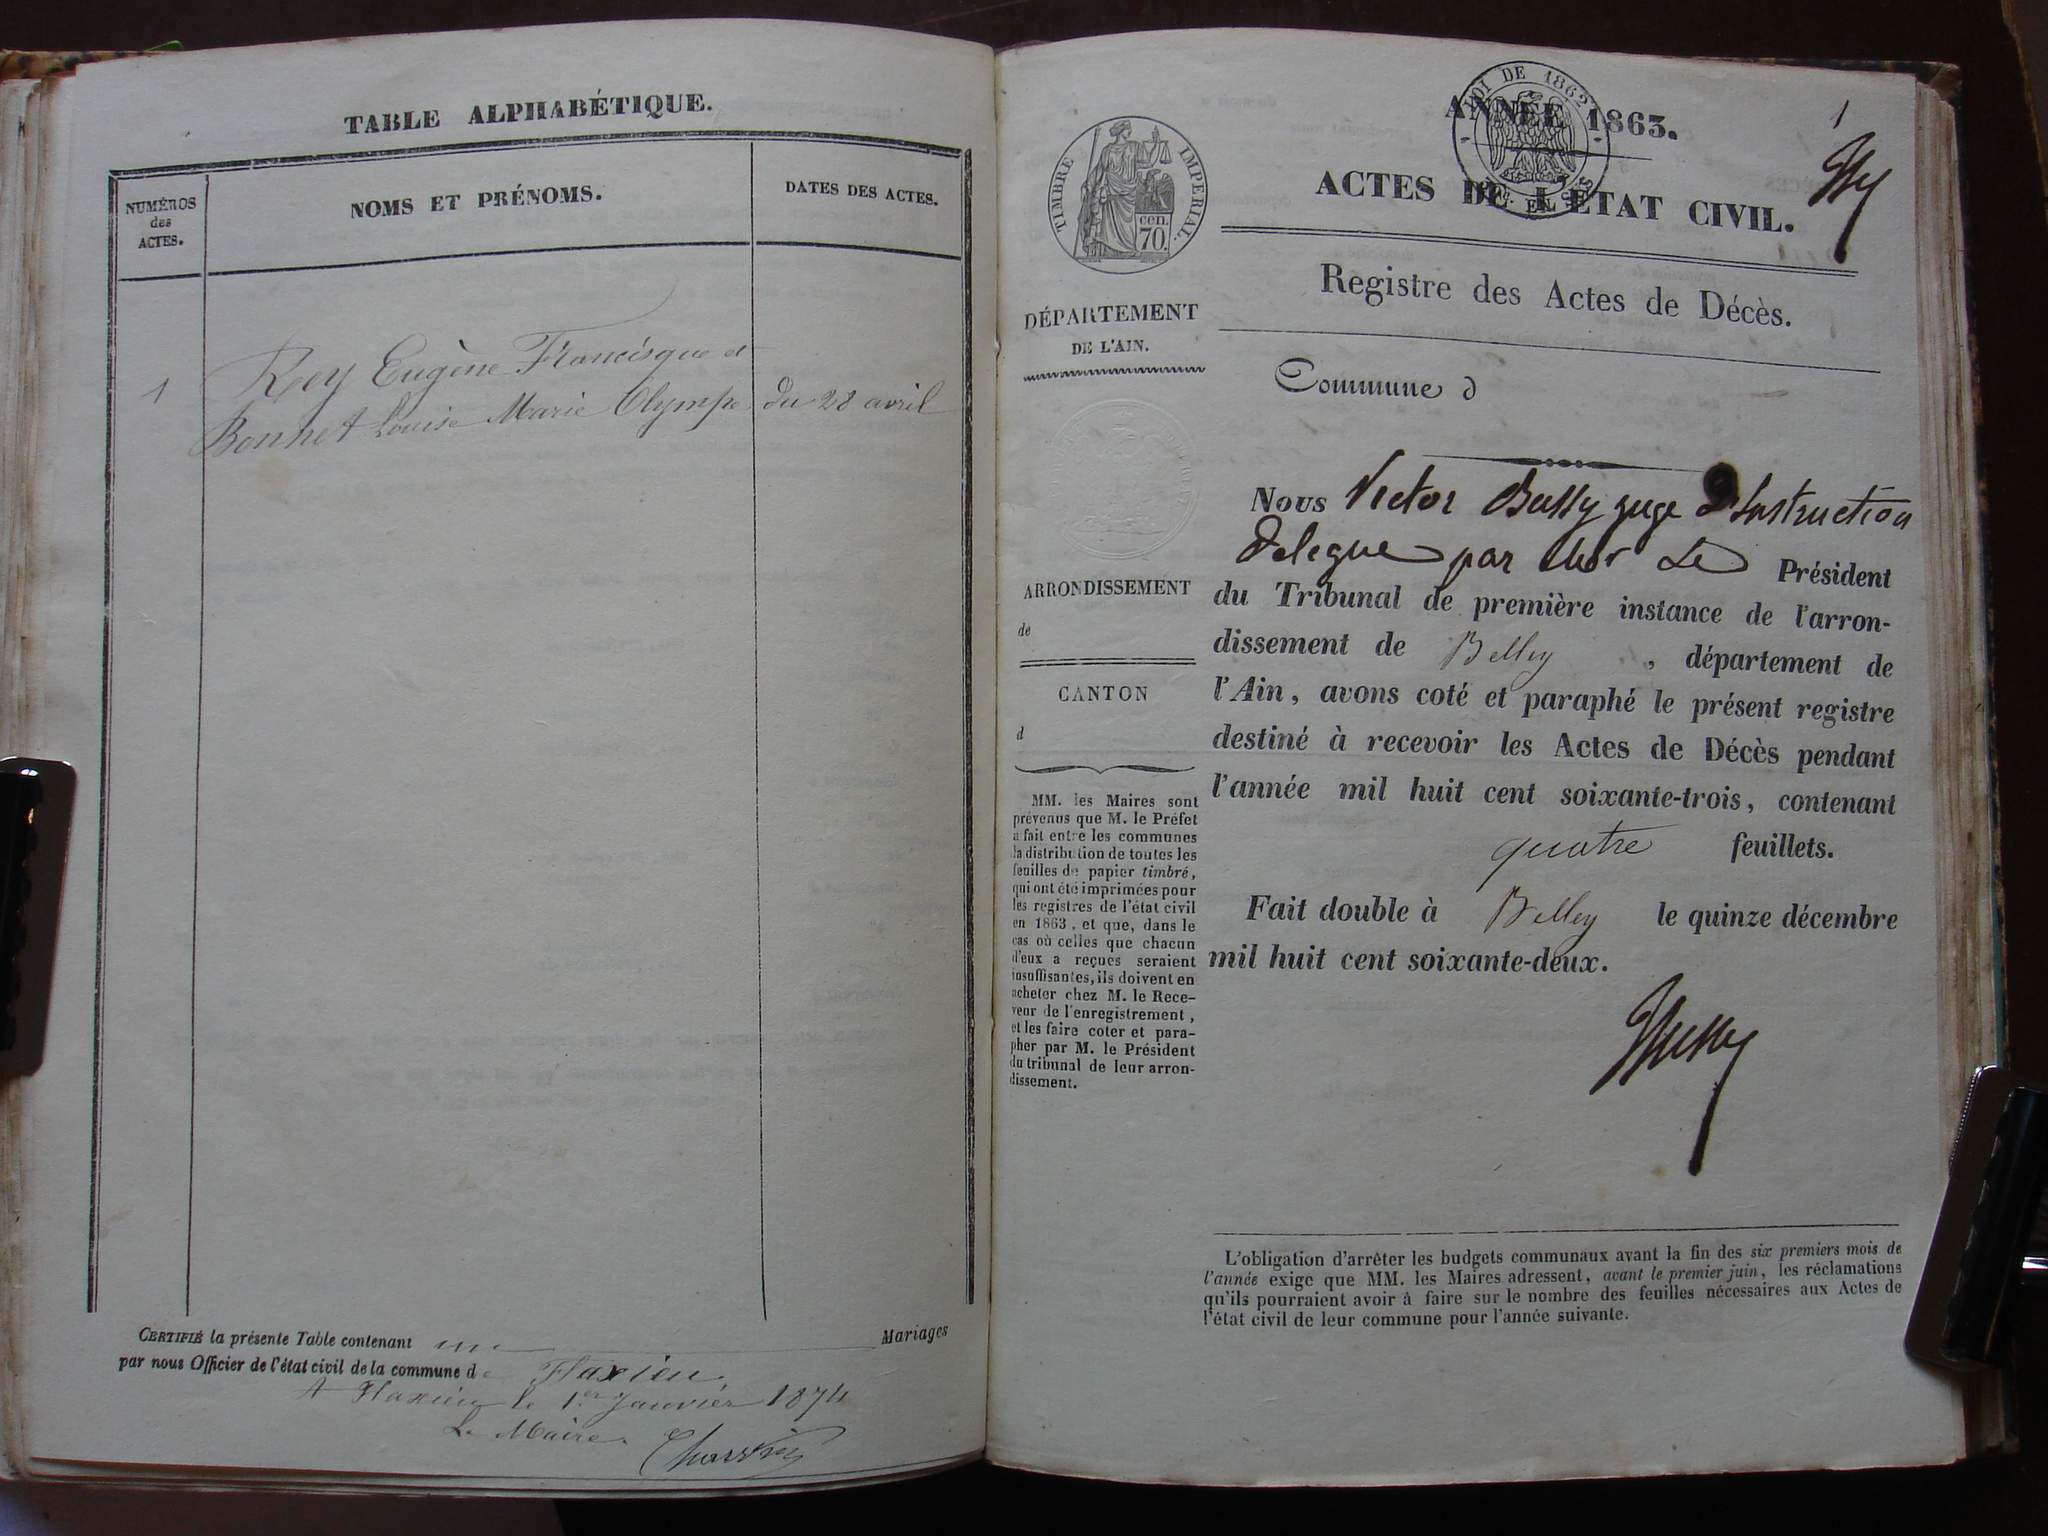 TABLE ALPHABÉTIQUE.
NUMÉROS
des
ACTES.
NOMS ET PRÉNOMS.
DATES DES ACTES.
1
Rey Eugène Francisque et
Bonnet Louise Marie Olympe
du 28 avril
CERTIFIÉ la présente Table contenant un Mariages
par nous Officier de l'état civil de la commune de Flaxieu
A Flaxieu le 1er Janvier 1874
Le Maire
TIMBRE IMPERIAL.
cen.
70.
DÉPARTEMENT
DE L'AIN.
ARRONDISSEMENT
de
CANTON
d
MM. les Maires sont
prévenus que M. le Préfet
a fait entre les communes
la distribution de toutes les
feuilles de papier timbré,
qui ont été imprimées pour
les registres de l'état civil
en 1863, et que, dans le
cas où celles que chacun
d'eux a reçues seraient
insuffisantes, ils doivent en
acheter chez M. le Rece-
veur de l'enregistrement,
et les faire coter et para-
pher par M. le Président
du tribunal de leur arron-
dissement.
1
LOI DE 1862
ANNÉE 1863.
ACTES DE L'ÉTAT CIVIL.
Registre des Actes de Décès.
Commune d
Nous Victor Bussy juge d'Instruction
delegue par Mr Le Président
du Tribunal de première instance de l'arron-
dissement de Belley, département de
l'Ain, avons coté et paraphé le présent registre
destiné à recevoir les Actes de Décès pendant
l'année mil huit cent soixante-trois, contenant
quatre feuillets.
Fait double à Belley le quinze décembre
mil huit cent soixante-deux.
Bussy
L'obligation d'arrêter les budgets communaux avant la fin des six premiers mois de
l'année exige que MM. les Maires adressent, avant le premier juin, les réclamations
qu'ils pourraient avoir à faire sur le nombre des feuilles nécessaires aux Actes de
l'état civil de leur commune pour l'année suivante.